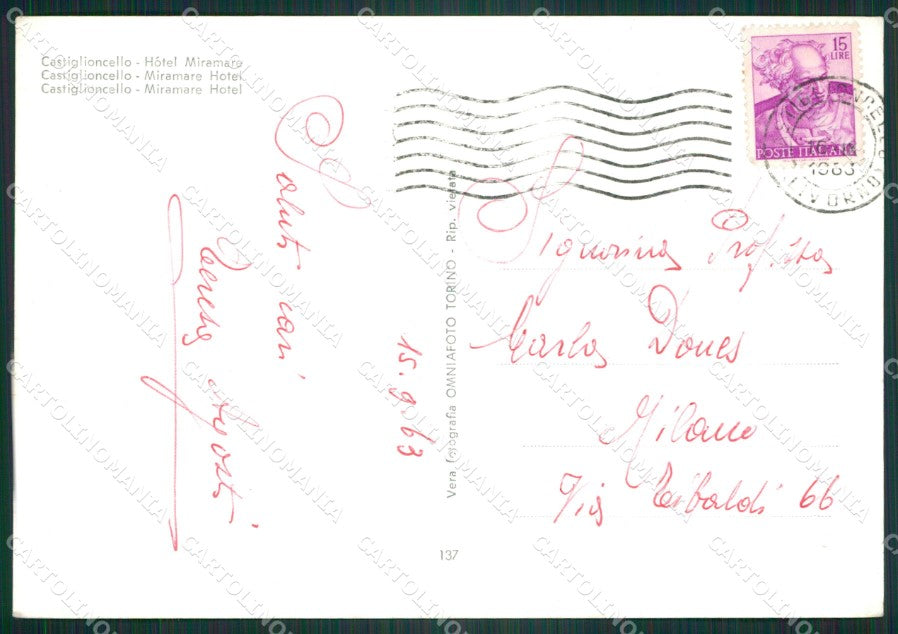 Castiglioncello - Hôtel Miramare
Castiglioncello - Miramare Hotel
Castiglioncello - Miramare Hotel
15
LIRE
POSTE ITALIANE
1963
LIVORNO
Saluti cari
15.9.63
Vera fotografia OMNIAFOTO TORINO - Rip. vietata
137
Signorina
Carla
Milano
Via Tibaldi 66
CARTOLINOMANIA